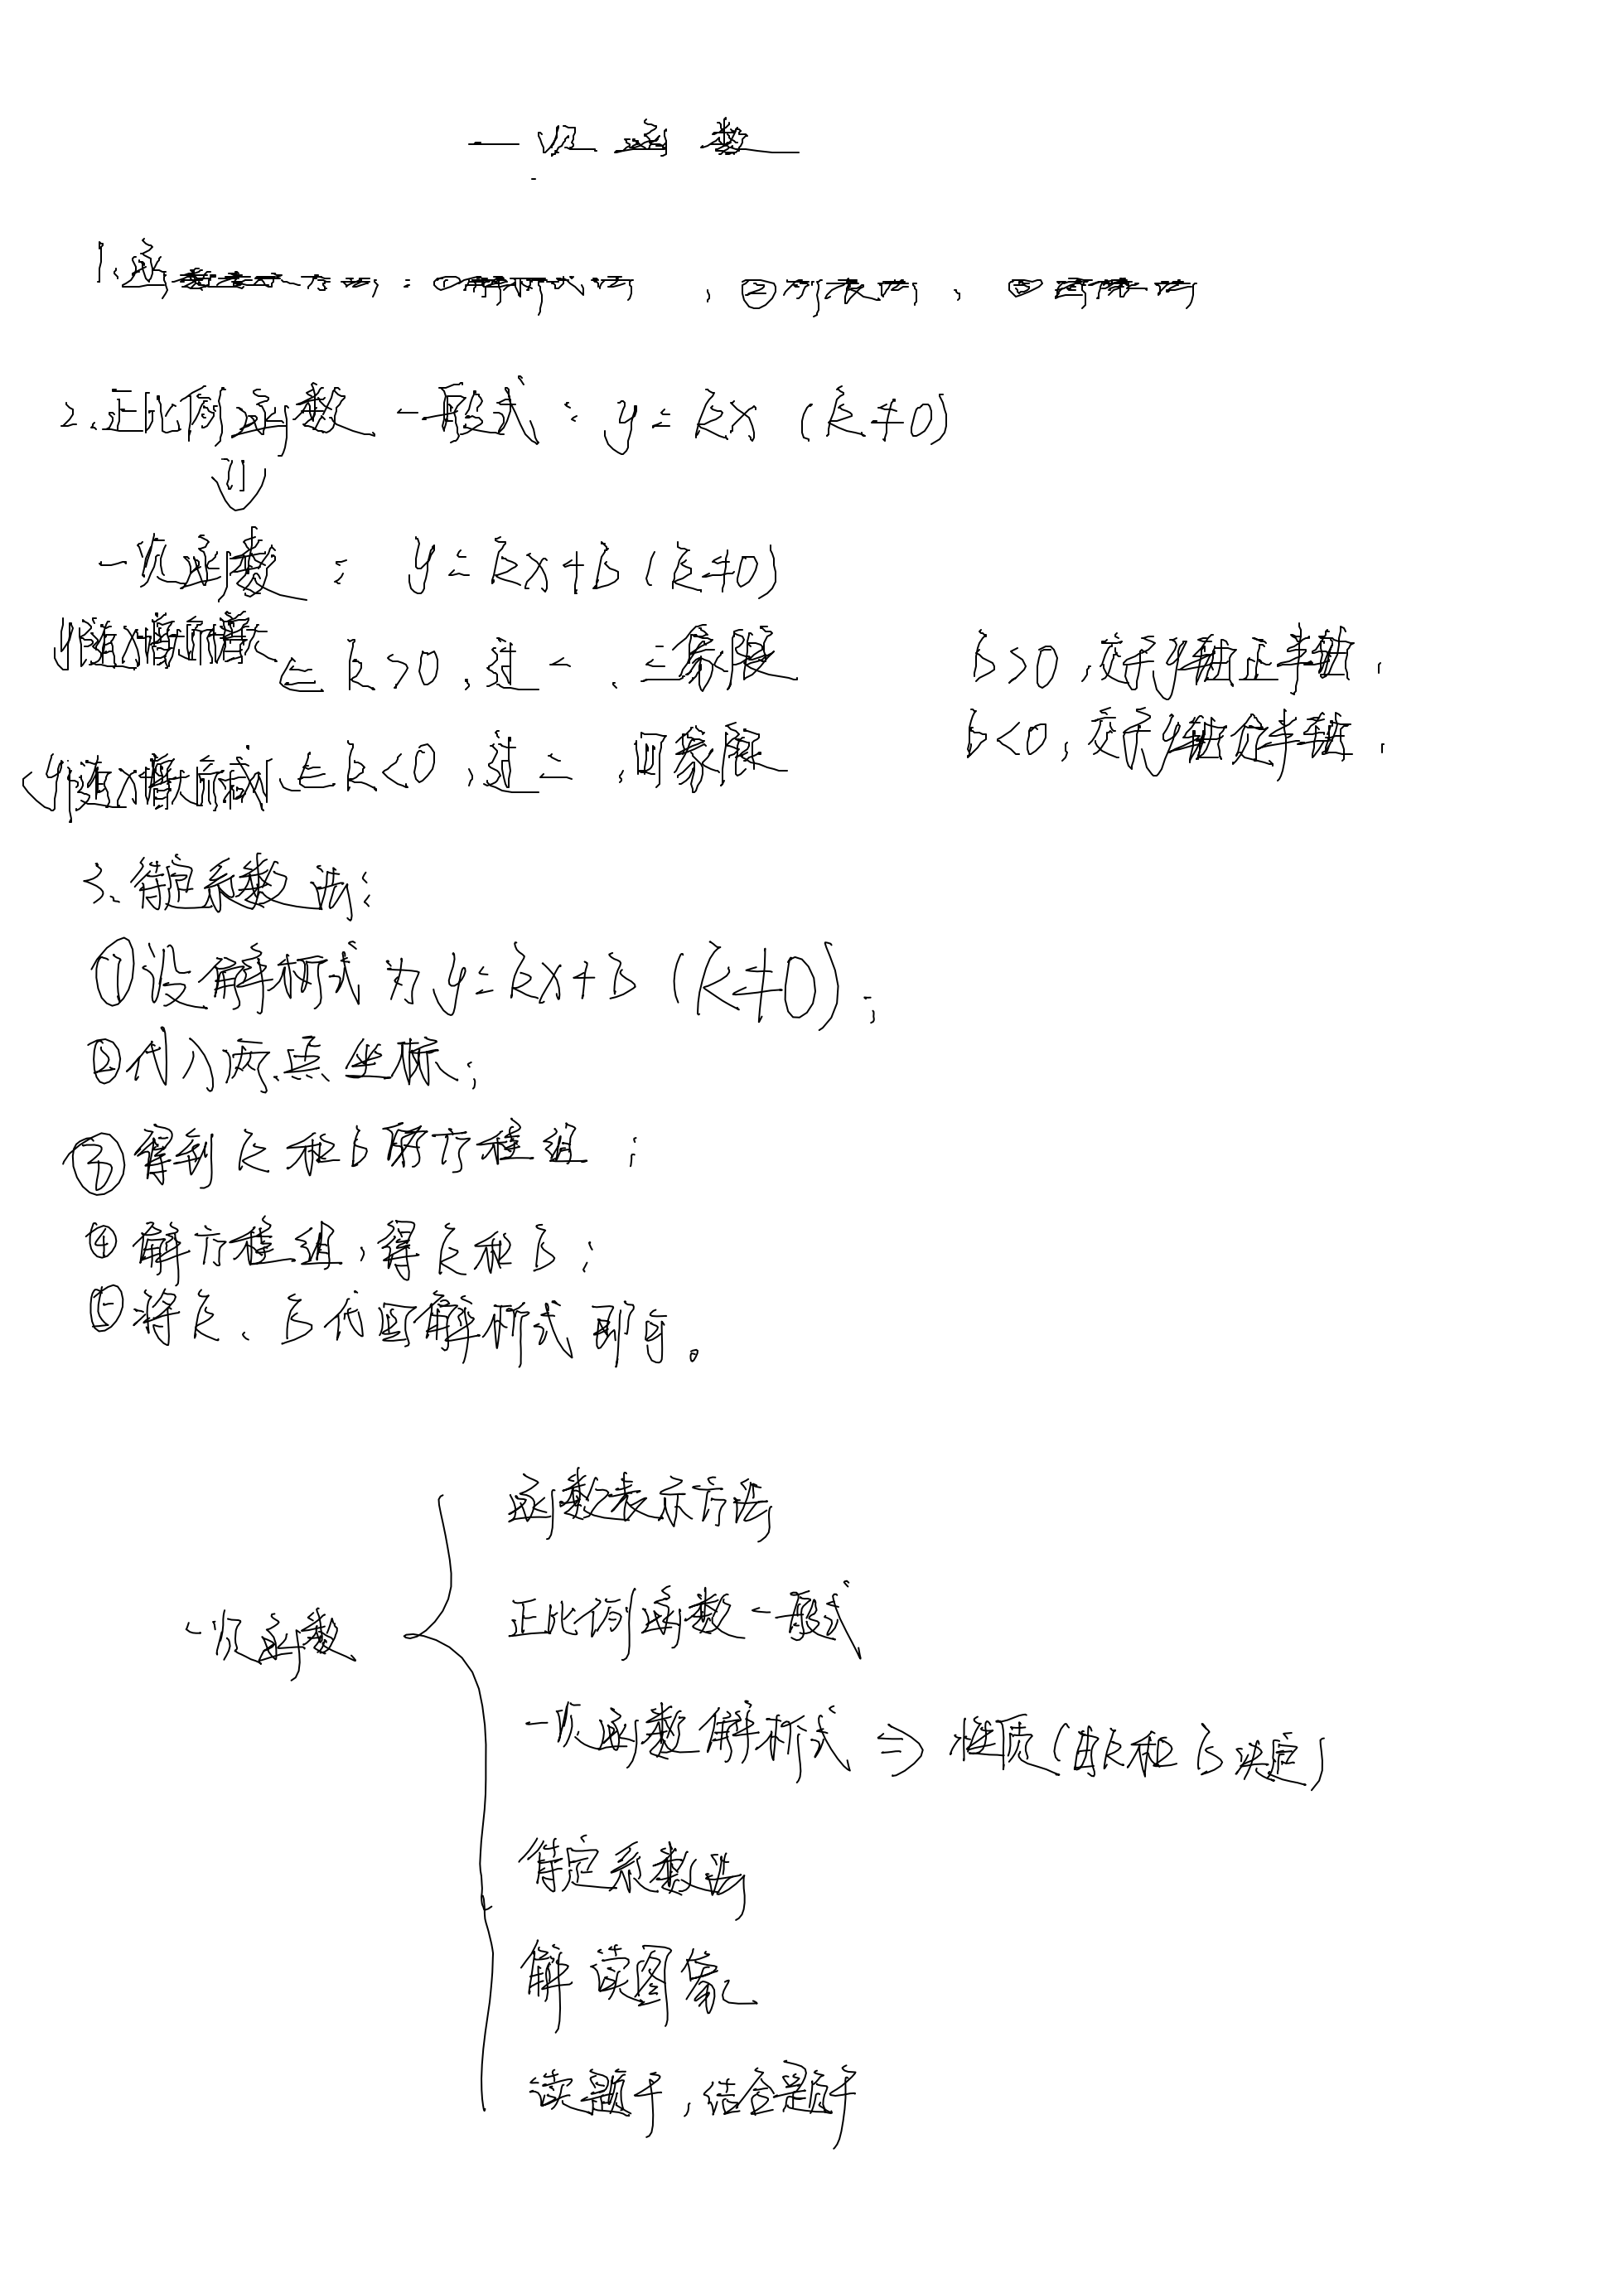 一次函数
1、函数表示方法：①解析式法，②列表法，③图像法
2、正比例函数一般式：y=kx（k≠0）
⇓
一次函数：y=kx+b（k≠0）
y随x增大而增大 ⇐ k>0，过一、三象限 b>0，交于y轴正半轴，
y随x增大而减小 ⇐ k<0，过二、四象限 b<0，交于y轴负半轴，
3、待定系数法：
①设解析式为y=kx+b（k≠0）；
②代入两点坐标；
③得到k和b的方程组；
④解方程组，得k和b；
⑤将k、b代回解析式即可。
函数表示方法
正比例函数一般式
一次函数
一次函数解析式⇒性质（由k和b决定）
待定系数法
解读图象
读题干，结合题干